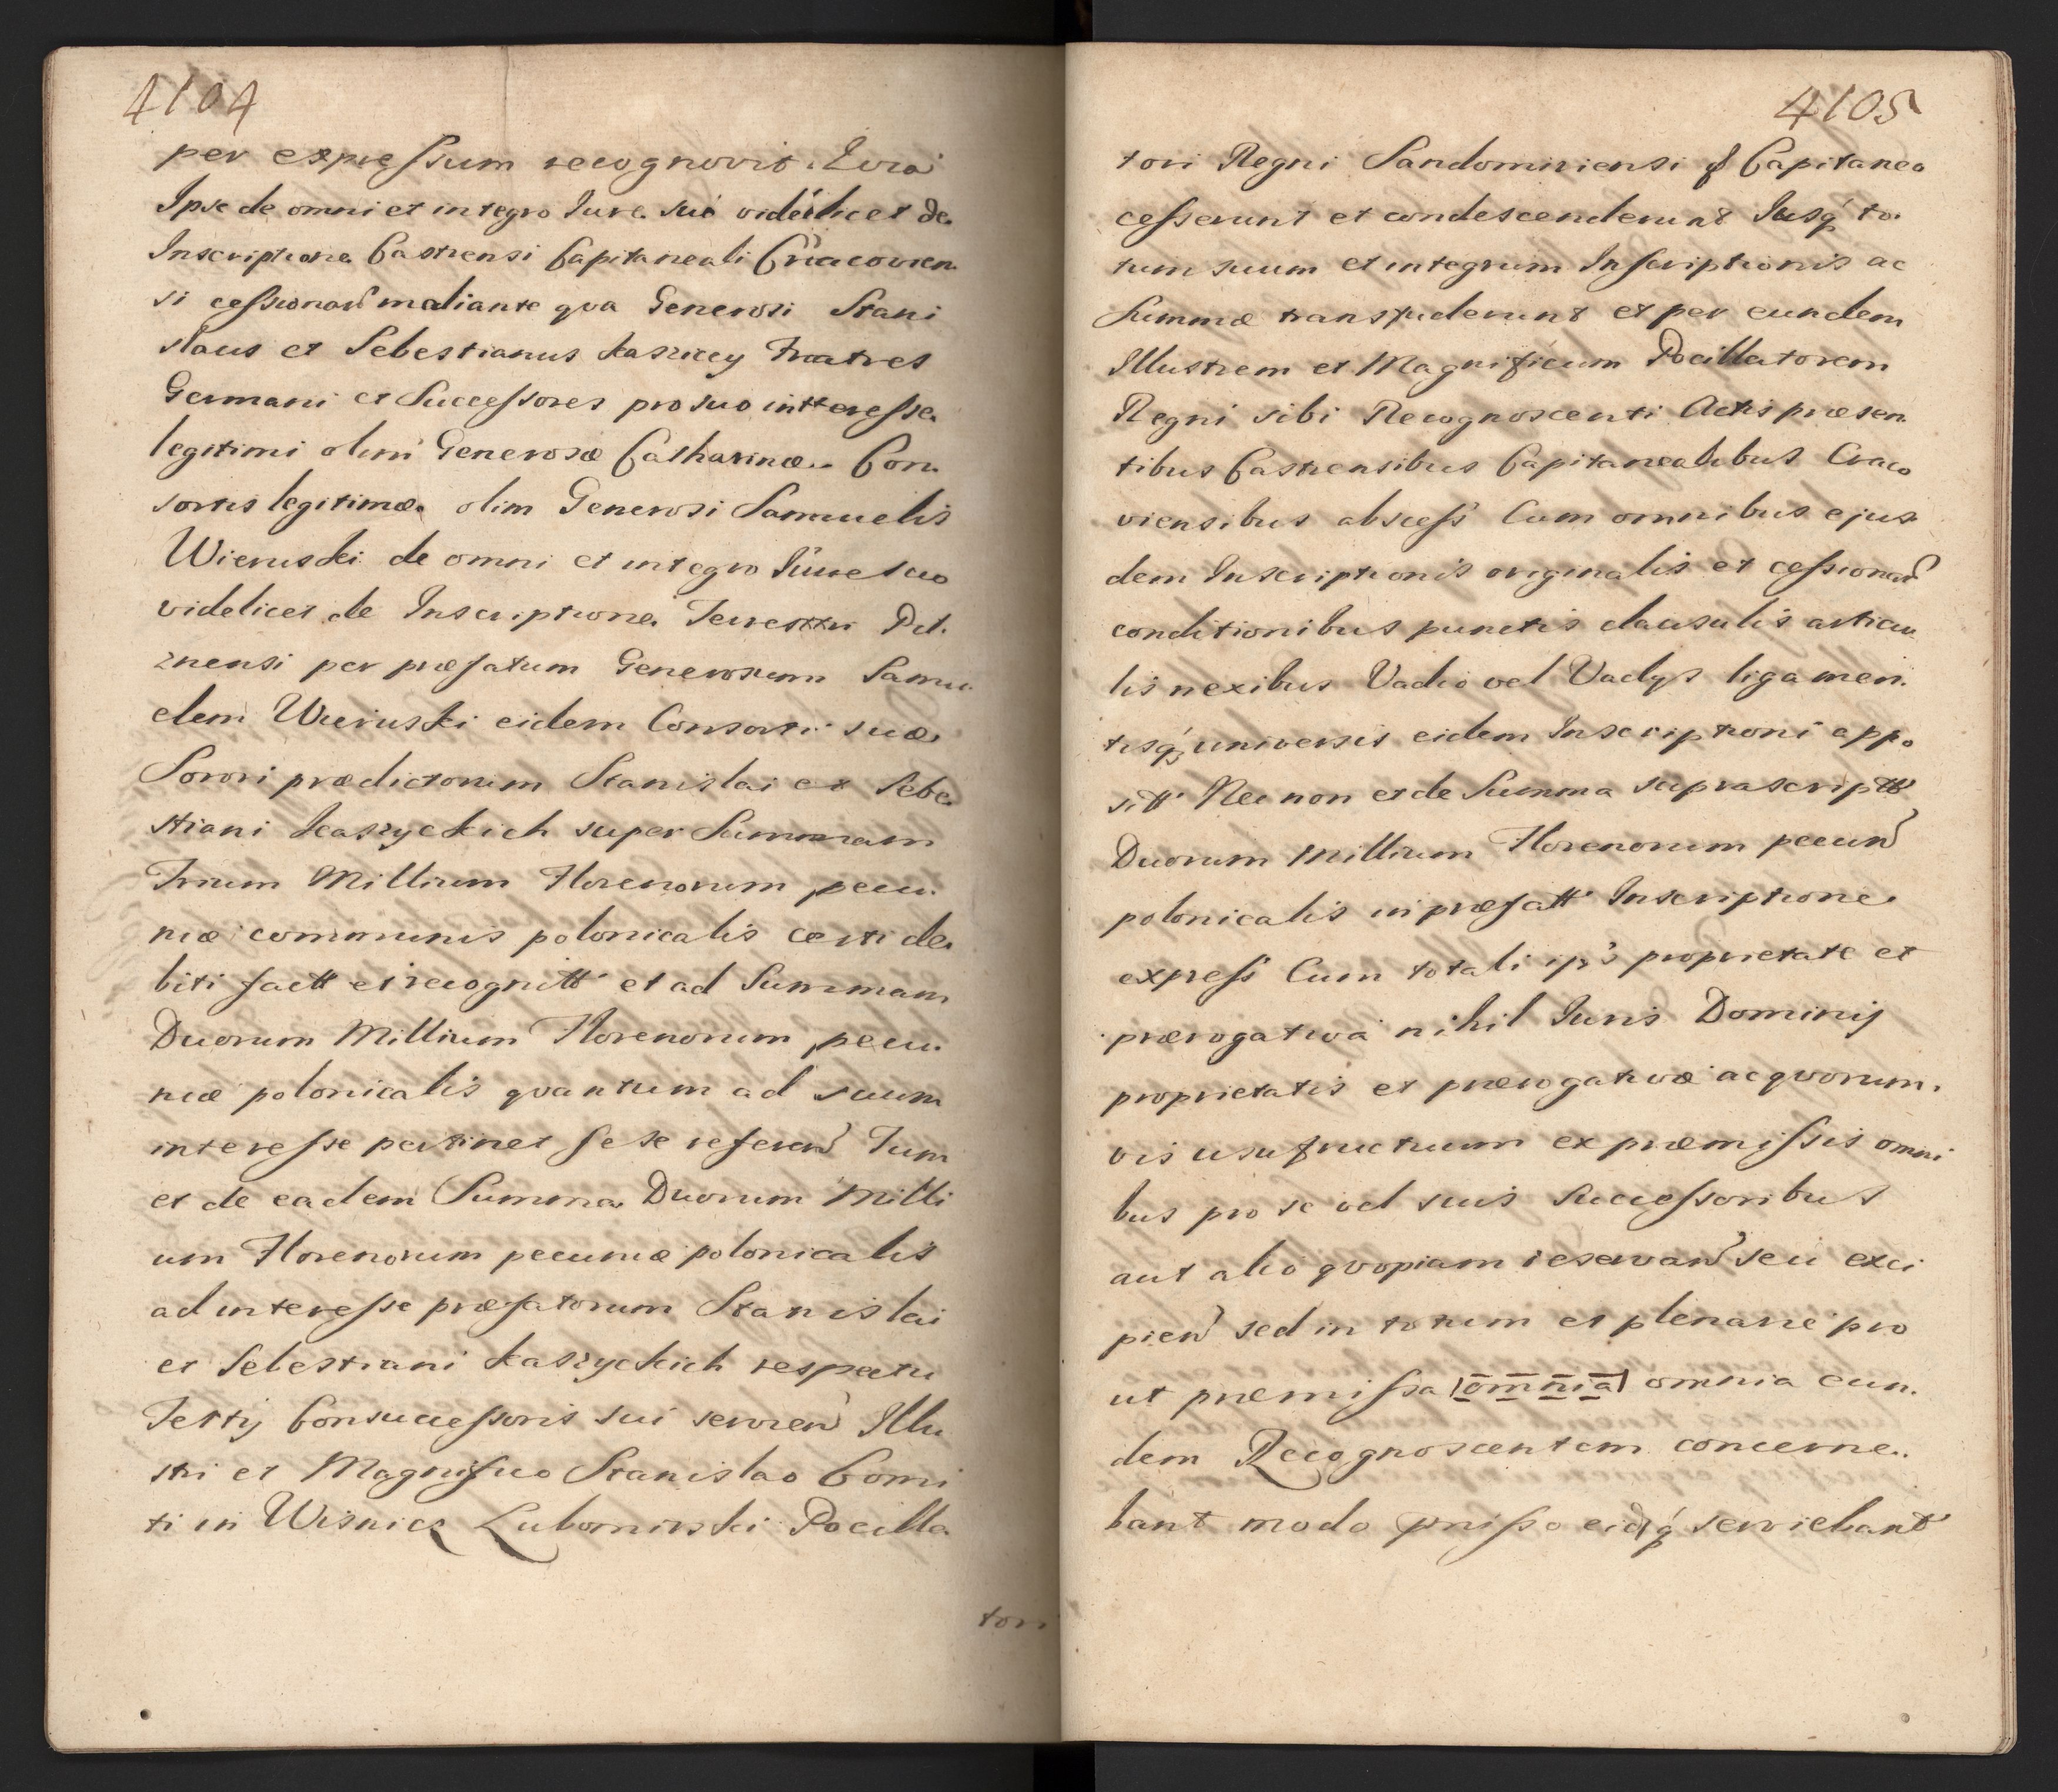 4104
per expressum recognovit. Quia
Ipse de omni et integro Iure suo videlicet de
Inscriptione Castrensi Capitaneali Cracovien
si cessionari mediante qva Generosi Stani
slaus et Sebestianus Kaszyccy Fratres
Germani et Successores pro suo intteresse
legitimi olim Generosæ Catharinæ Con
sortis legitimæ olim Generosi Samuelis
Wieruski de omni et integro Iure suo
videlicet de Inscriptione Terresttri Pil
znensi per præfatum Generosum Samu
elem Wieruski eidem Consorti suæ
Sorori prædictorum Stanislai et Sebe
stiani Kaszyckich super Summam
Trium Millium Florenorum pecu
niæ communis polonicalis certi de
biti factt et recognitt et ad Summam
Duorum Millium Florenorum pecu
niæ polonicalis qvantum ad suum
interesse pertinet sese referen Tum
et de eadem Summa Duorum Milli
um Florenorum pecuniæ polonicalis
ad interesse præfatorum Stanislai
et Sebestiani Kaszyckich respectu
Tertij Consuccessoris sui servien Illu
stri et Magnifico Stanislao Comi
ti in Wisnicz Lubomirski Pocilla
tori
4105
tori Regni Sandomiriensi & Capitaneo
cesserunt et condescenderunt Iusq to
tum suum et integrum Inscriptionis ac
Summæ transfuderunt et per eundem
Illustrem et Magnificum Pocillatorem
Regni sibi Recognoscenti Actis præsen
tibus Castrensibus Capitanealibus Craco
viensibus abscess Cum omnibus ejus
dem Inscriptionis originalis et cessionar
conditionibus punctis clausulis articu
lis nexibus Vadio vel Vadys ligamen
tisq universis eidem Inscriptioni appo
sitt Nec non et de Summa suprascriptt
Duorum Millium Florenorum pecun
polonicalis in præfatt Inscriptione
express Cum totali ips proprietate et
prærogativa nihil Iuris Dominij
proprietatis et prærogativæ ac qvorum
vis usufructuum ex præmissis omni
bus pro se vel suis Successoribus
aut alio qvopiam reservan seu exci
pien sed in totum et plenarie pro
ut præmissa (omnia) omnia eun
dem Recognoscentem concerne
bant modo pmisso eidq serviebant